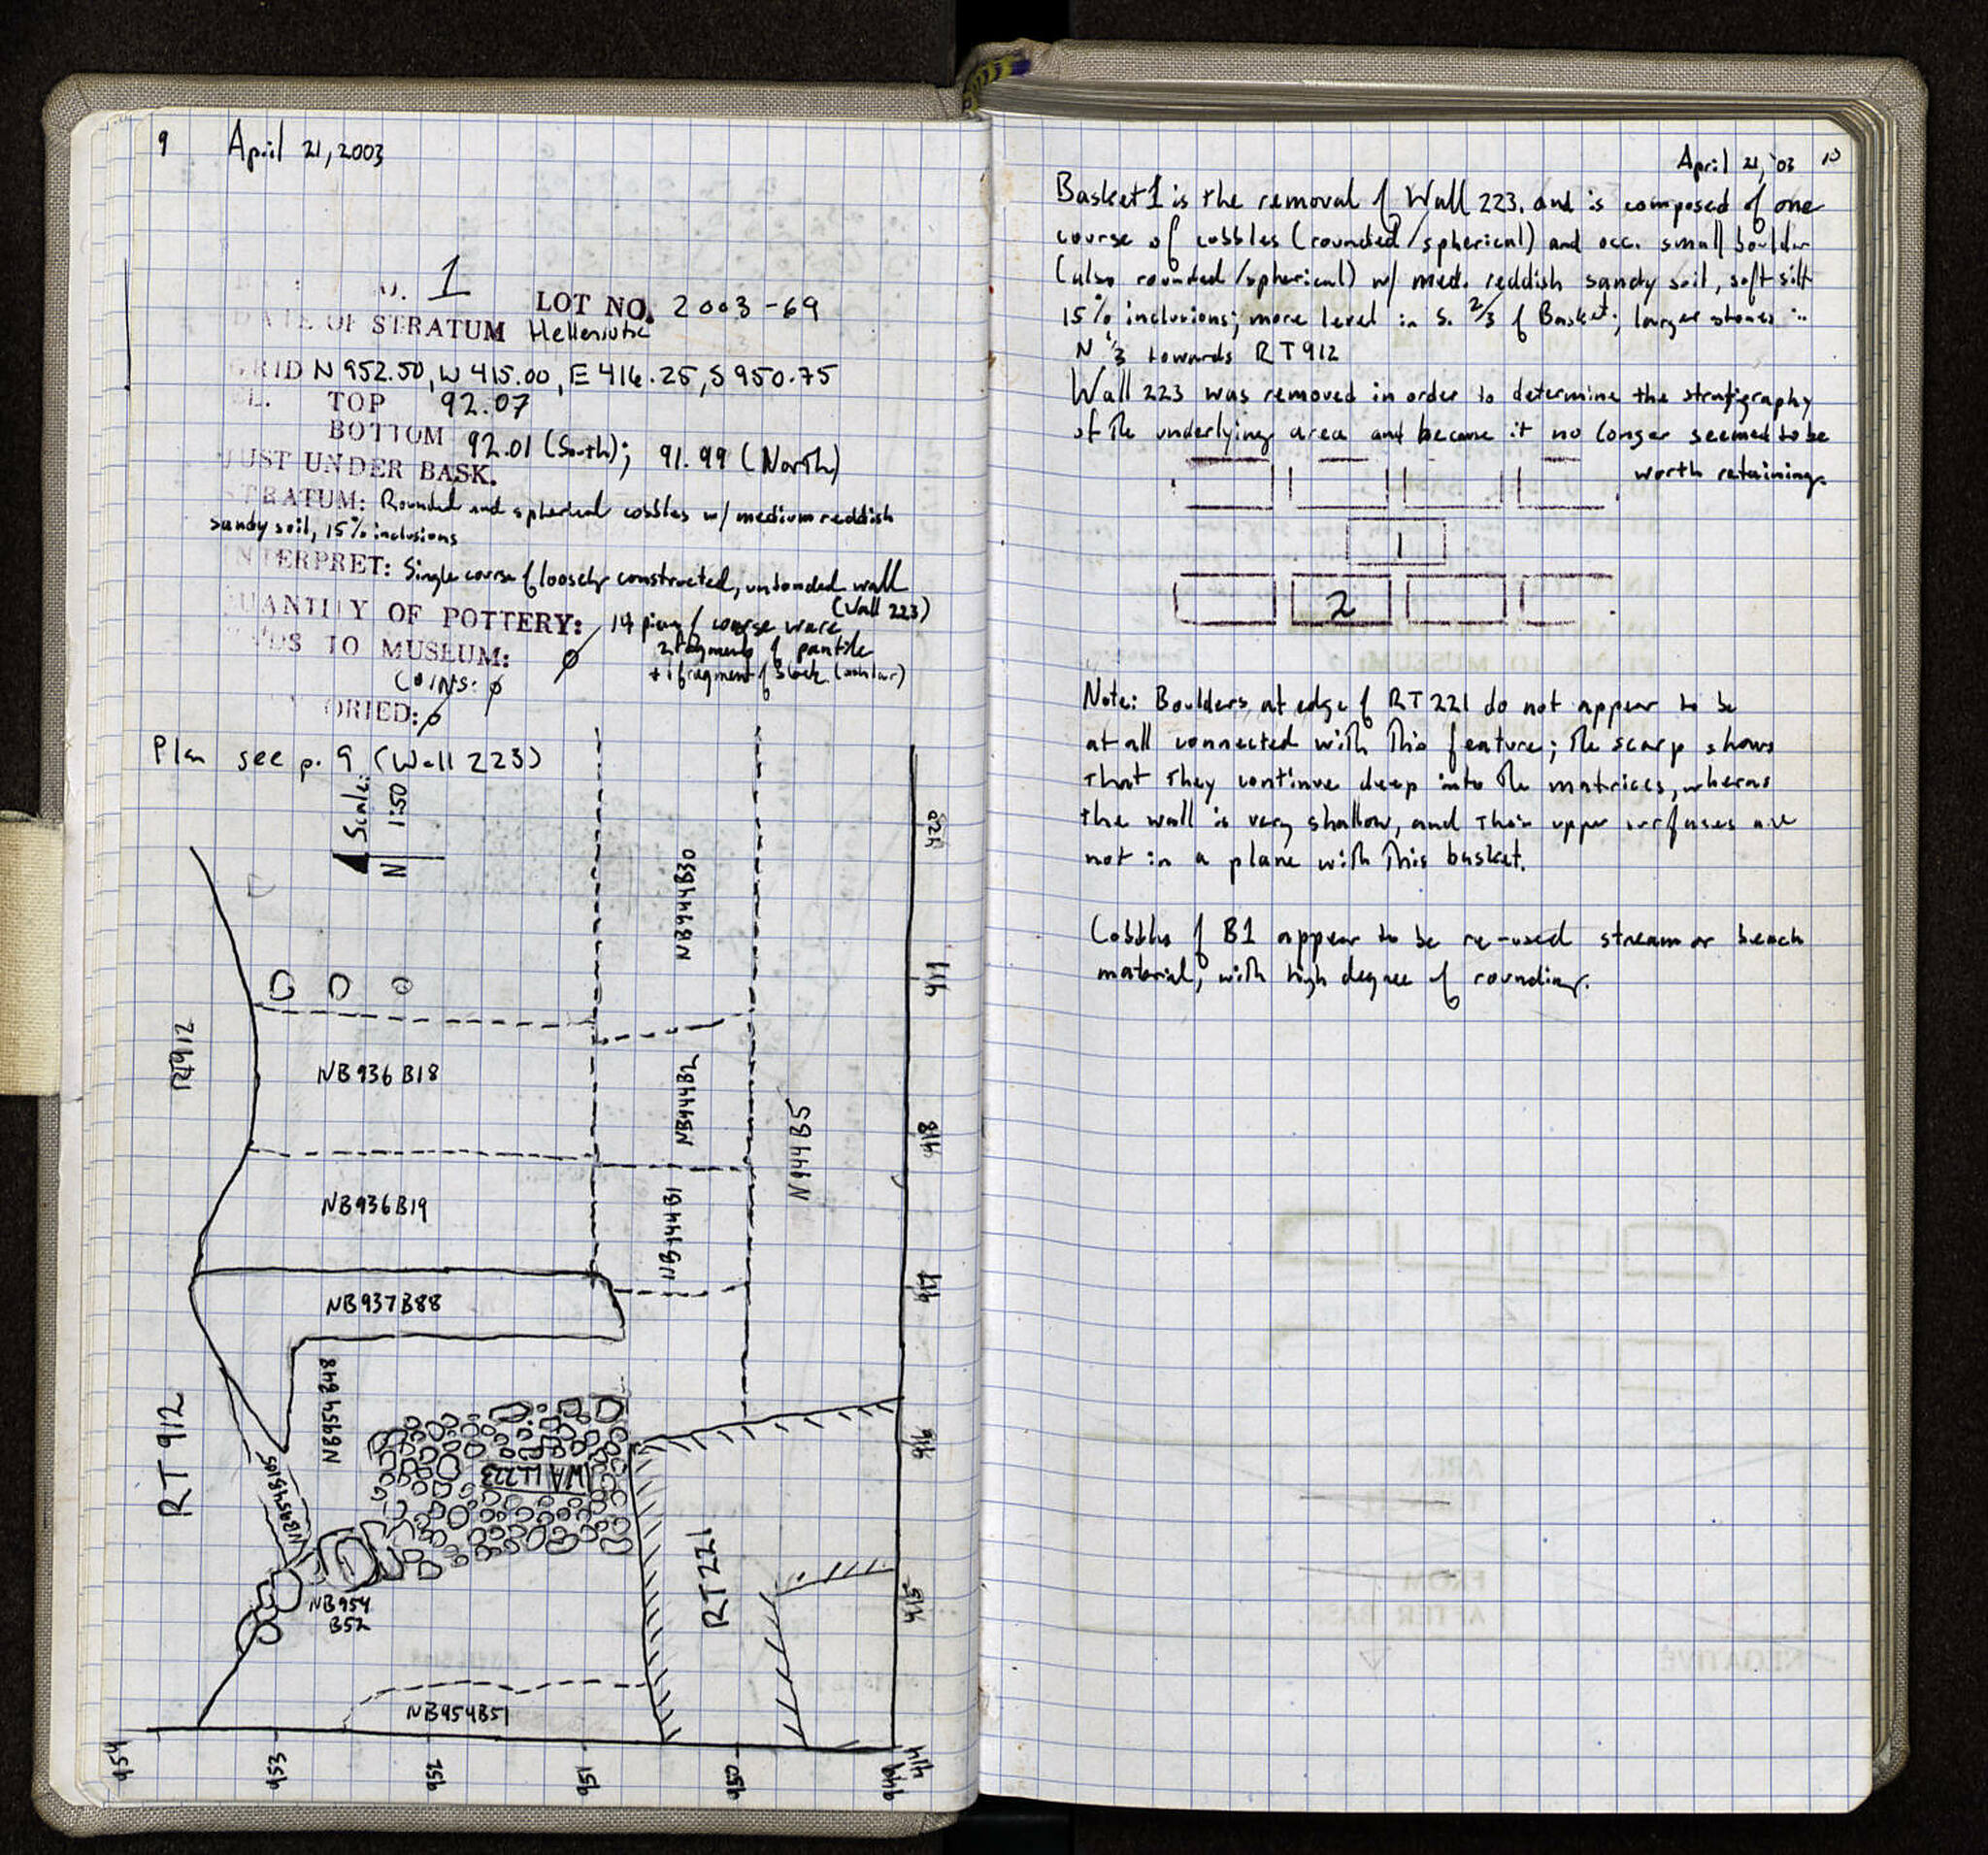 9 April 21, 2003
1
LOT NO. 2003-69
DATE OF STRATUM Hellenistic
GRID N 952.50, W 415.00, E 416.25, S 950.75
EL. TOP 92.07
BOTTOM 92.01 (South); 91.99 (North)
JUST UNDER BASK.
STRATUM: Rounded and spherical cobbles w/ medium reddish
sandy soil, 15% inclusions
INTERPRET: Single course of loosely constructed, unbonded wall
(Wall 223)
QUANTITY OF POTTERY: 14 pieces of coarse ware
2 fragments of pantile
+ 1 fragment of block
TO MUSEUM: ø
COINS: ø
ORIED: ø
Plan see p. 9 (Wall 223)
Scale:
1:50
N
RT912
NB936 B18
NB936 B19
NB937B88
NB944B30
NB944B2
NB944B11
NB944B5
NB954B48
NB954B105
RT 912
WALL 223
NB954
B52
RT 221
NB954B51
420
419
418
417
416
415
414
954
953
952
951
950
949
April 21, '03 10
Basket 1 is the removal of Wall 223. and is composed of one
course of cobbles (rounded/spherical) and occ. small boulder
(also rounded/spherical) w/ med. reddish sandy soil, soft silt
15% inclusions; more level in S. 2/3 of Basket; larger stones in
N 1/3 towards RT912
Wall 223 was removed in order to determine the stratigraphy
of the underlying area and because it no longer seemed to be
worth retaining.
1
2
Note: Boulders at edge of RT 221 do not appear to be
at all connected with this feature; the scarp shows
that they continue deep into the matrices, wheras
the wall is very shallow, and their upper surfaces are
not in a plane with this basket.
Cobbles of B1 appear to be re-used stream or beach
material, with high degree of rounding.